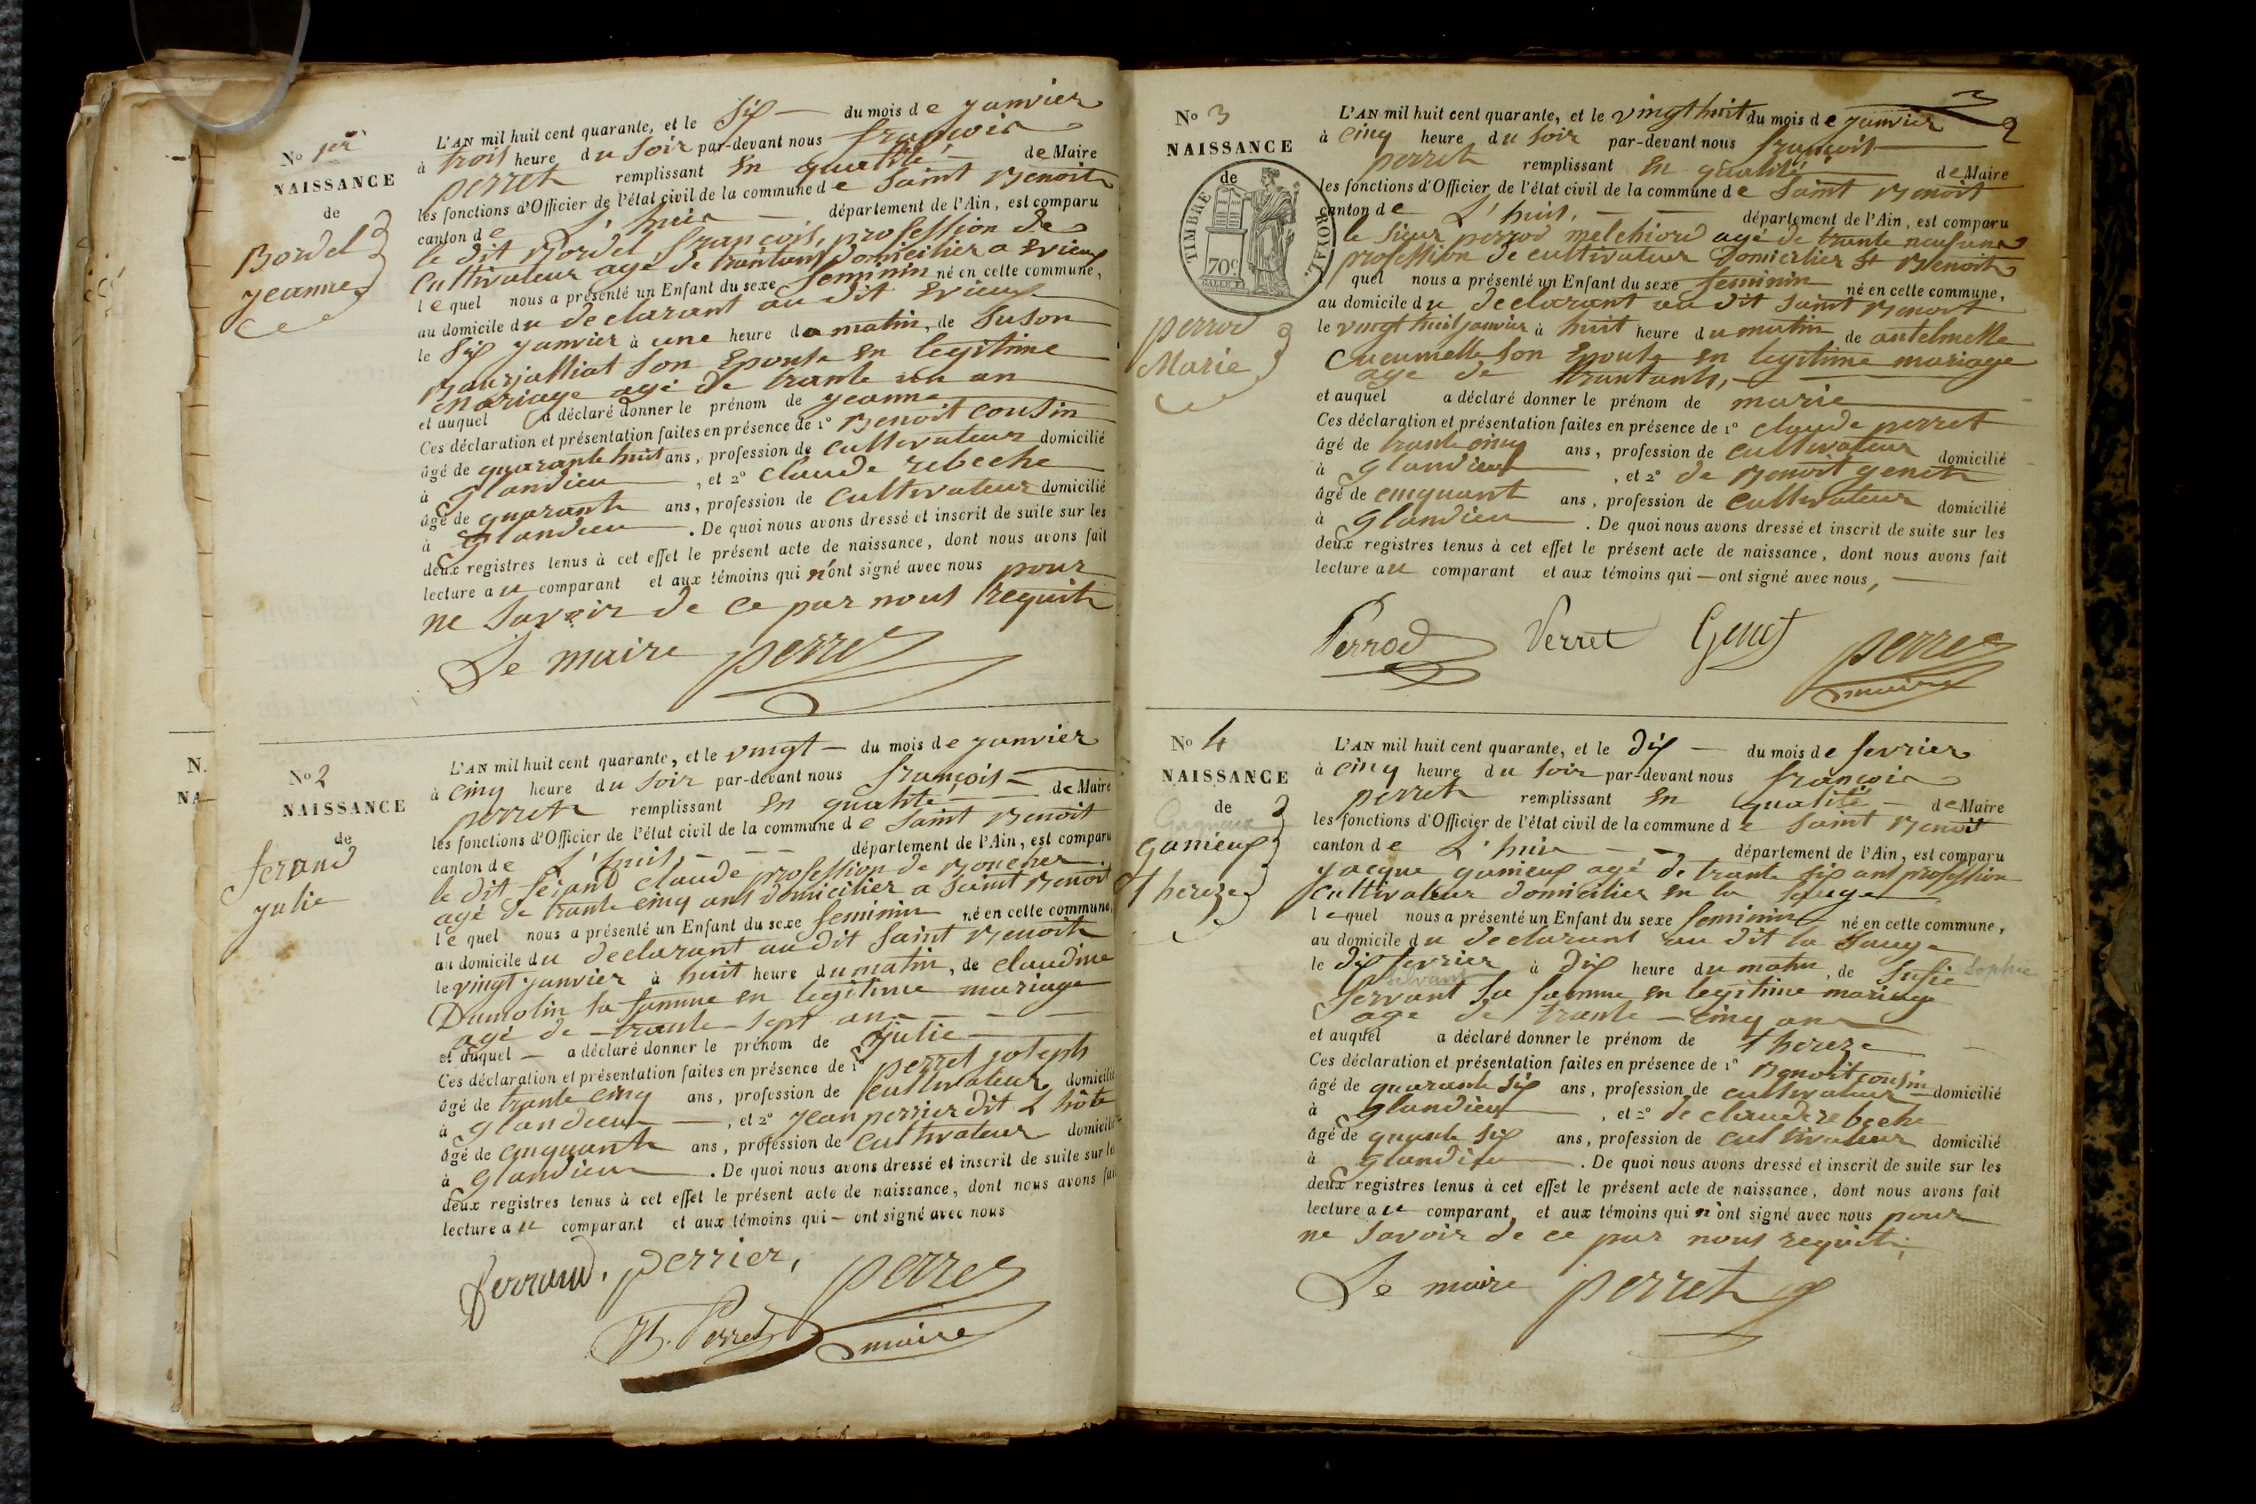 No 1er
NAISSANCE
de
Bordel
jeanne
L'AN mil huit cent quarante, et le six du mois de janvier
à trois heure du soir par-devant nous françois
perret remplissant en qualité de Maire
les fonctions d'Officier de l'état civil de la commune de saint Benoit
canton de L'huis département de l'Ain, est comparu
le dit Bordel françois, profession de
Cultivateur agé de trantans domicilier a Evieux
le quel nous a présenté un Enfant du sexe feminin né en cette commune,
au domicile du declarant au dit Evieux
le six janvier à une heure du matin, de Suson
son Epouse en legitime
mariage agé de trante un an
et auquel a déclaré donner le prénom de jeanne
Ces déclaration et présentation faites en présence de 1° Benoit cousin
âgé de quarante huit ans, profession de cultivateur domicilié
à glandieu, et 2° claude rebeche
âgé de quarante ans, profession de cultivateur domicilié
à glandieu. De quoi nous avons dressé et inscrit de suite sur les
deux registres tenus à cet effet le présent acte de naissance, dont nous avons fait
lecture au comparant et aux témoins qui n'ont signé avec nous pour
ne savoir de ce par nous requit
Le maire perret
No 2
NAISSANCE
de
ferand
julie
L'AN mil huit cent quarante, et le vingt du mois de janvier
à cinq heure du soir par-devant nous françois
perret remplissant en qualité de Maire
les fonctions d'Officier de l'état civil de la commune de saint Benoit
canton de L'huis département de l'Ain, est comparu
le dit claude profession de Boucher
agé de trante cinq ans domicilier a saint Benoit
le quel nous a présenté un Enfant du sexe feminin né en cette commune,
au domicile du declarant au dit saint Benoit
le vingt janvier à huit heure du matin, de claudine
Dumolin sa famme en legitime mariage
agé de trante sept an
et auquel a déclaré donner le prénom de julie
Ces déclaration et présentation faites en présence de 1° perret joseph
âgé de trante cinq ans, profession de cultivateur domicilié
à glandieu, et 2° jean perrier dit L'hôte
âgé de cinquante ans, profession de cultivateur domicilié
à glandieu. De quoi nous avons dressé et inscrit de suite sur les
deux registres tenus à cet effet le présent acte de naissance, dont nous avons fait
lecture au comparant et aux témoins qui ont signé avec nous
ferrand. perrier, perret
Perret maire
N.
NA
3
2
No 3
NAISSANCE
de
TIMBRE ROYAL.
70c
perrod
Marie
L'AN mil huit cent quarante, et le vingt huit du mois de janvier
à cinq heure du soir par-devant nous françois
perret remplissant en qualité de Maire
les fonctions d'Officier de l'état civil de la commune de saint Benoit
canton de L'huis, département de l'Ain, est comparu
le sieur perrod melchiord agé de trante neuf ans
profession de cultivateur Domicilier St Benoit
quel nous a présenté un Enfant du sexe feminin né en cette commune,
au domicile du declarant au dit saint Benoit
le vingt huit janvier à huit heure du matin de antelmette
Cucumelle son Epouse en legitime mariage
age de trantans,
et auquel a déclaré donner le prénom de marie
Ces déclaration et présentation faites en présence de 1° claude perret
âgé de trante cinq ans, profession de cultivateur domicilié
à glandieux, et 2° de Benoit genet
âgé de cinquant ans, profession de cultivateur domicilié
à glandieu. De quoi nous avons dressé et inscrit de suite sur les
deux registres tenus à cet effet le présent acte de naissance, dont nous avons fait
lecture au comparant et aux témoins qui ont signé avec nous,
Perrod Perret Genet perret
maire
No 4
NAISSANCE
de
Gagneux
gonieux
thereze
L'AN mil huit cent quarante, et le dix du mois de fevrier
à cinq heure du soir par-devant nous françois
perret remplissant en qualité de Maire
les fonctions d'Officier de l'état civil de la commune de saint Benoit
canton de L'huis département de l'Ain, est comparu
jacque gonieux agé de trante six ans profession
cultivateur domicilier en la sauge
le quel nous a présenté un Enfant du sexe feminin né en cette commune,
au domicile du declarant au dit la sauge
le dix fevrier à dix heure du matin, de sufie Sophie
servant sa famme en legitime mariage
age de trante cinq ans
et auquel a déclaré donner le prénom de thereze
Ces déclaration et présentation faites en présence de 1° Benoit cousin
âgé de quarante six ans, profession de cultivateur domicilié
à glandieu, et 2° de claude rebeche
âgé de quarante six ans, profession de cultivateur domicilié
à glandieu. De quoi nous avons dressé et inscrit de suite sur les
deux registres tenus à cet effet le présent acte de naissance, dont nous avons fait
lecture au comparant, et aux témoins qui n'ont signé avec nous pour
ne savoir de ce par nous requit,
Le maire perret